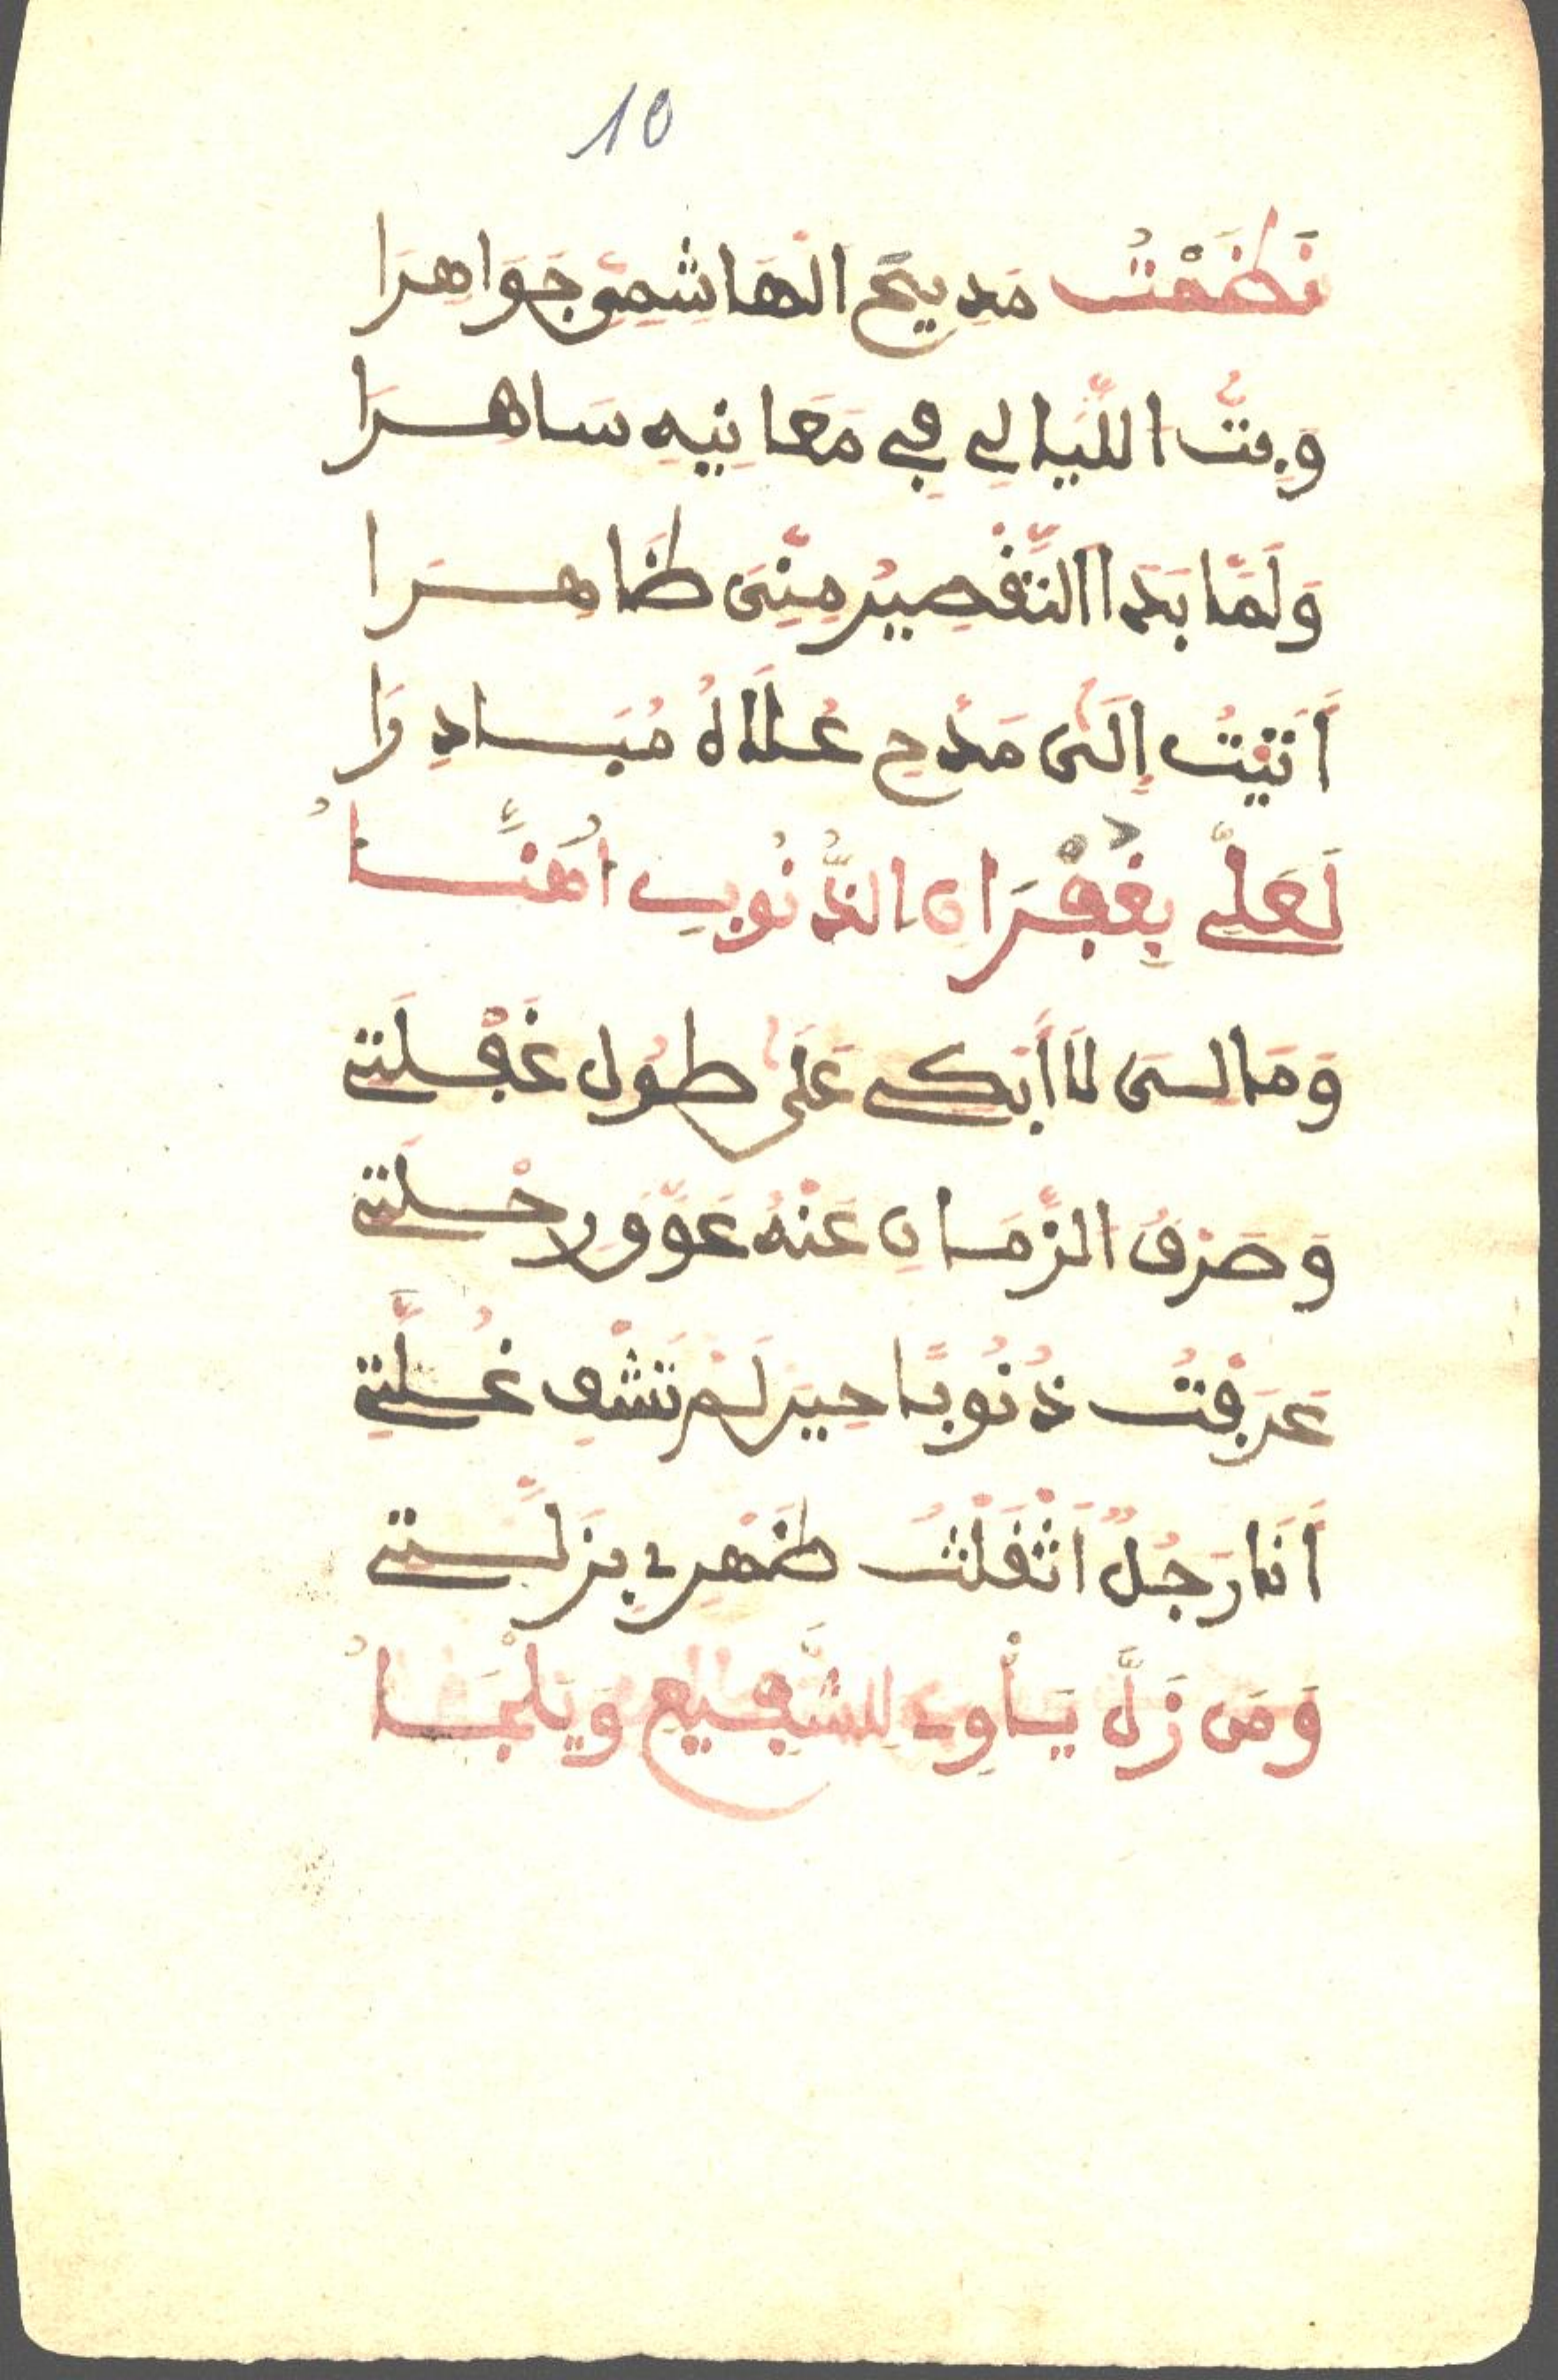 10
نَظَمْتُ مَدِيحَ الْهَاشِمِيِّ جَوَاهِرَا
وَبِتُّ اللَّيَالِي فِي مَعَانِيهِ سَاهِرَا
وَلَمَّا بَدَا التَّقْصِيرُ مِنِّيَ ظَاهِرَا
أَتَيْتُ إِلَى مَدْحِ عُلَاهُ مُبَادِرَا
لَعَلِّي بِغُفْرَانِ الذُّنُوبِ أُهَنَّأُ
وَمَا لِيَ لَا أَبْكِي عَلَى طُولِ غَفْلَتِي
وَصَرْفُ الزَّمَانِ عَنْهُ عَوَّوَ رَحْلَتِي
عَرَفْتُ ذُنُوبًا حِينَ لَمْ تَشْفِ غُلَّتِي
أَنَا رَجُلٌ أَثْقَلْتُ ظَهْرِي بِزَلَّتِي
وَمَن زَلَّ يَأْوِي لِلشَّفِيعِ وَيَلْجَأُ